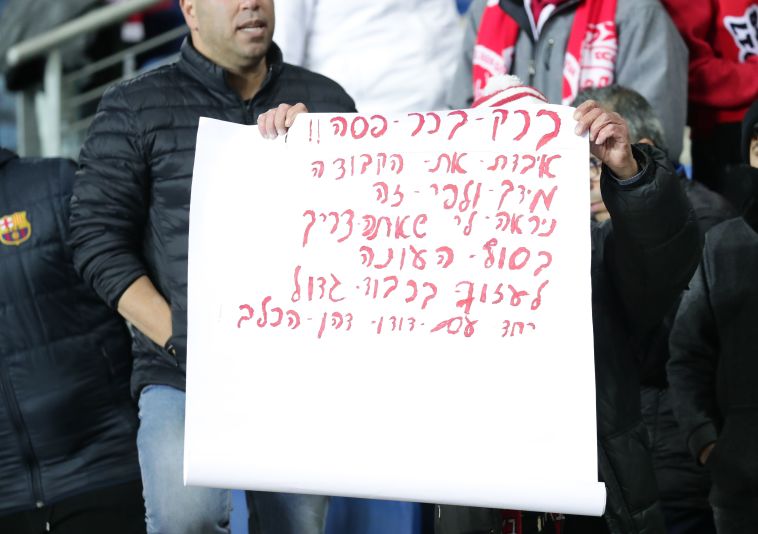 ברק-בכר-פסה!!
איבדת-את-הקבוצה
מידך-ולפי-זה
ניראה-לי שאתה-צריך
בסוף-העונה
לעזוף בכבוד-גדול
יחד עם-דודו-דהן-הכלב